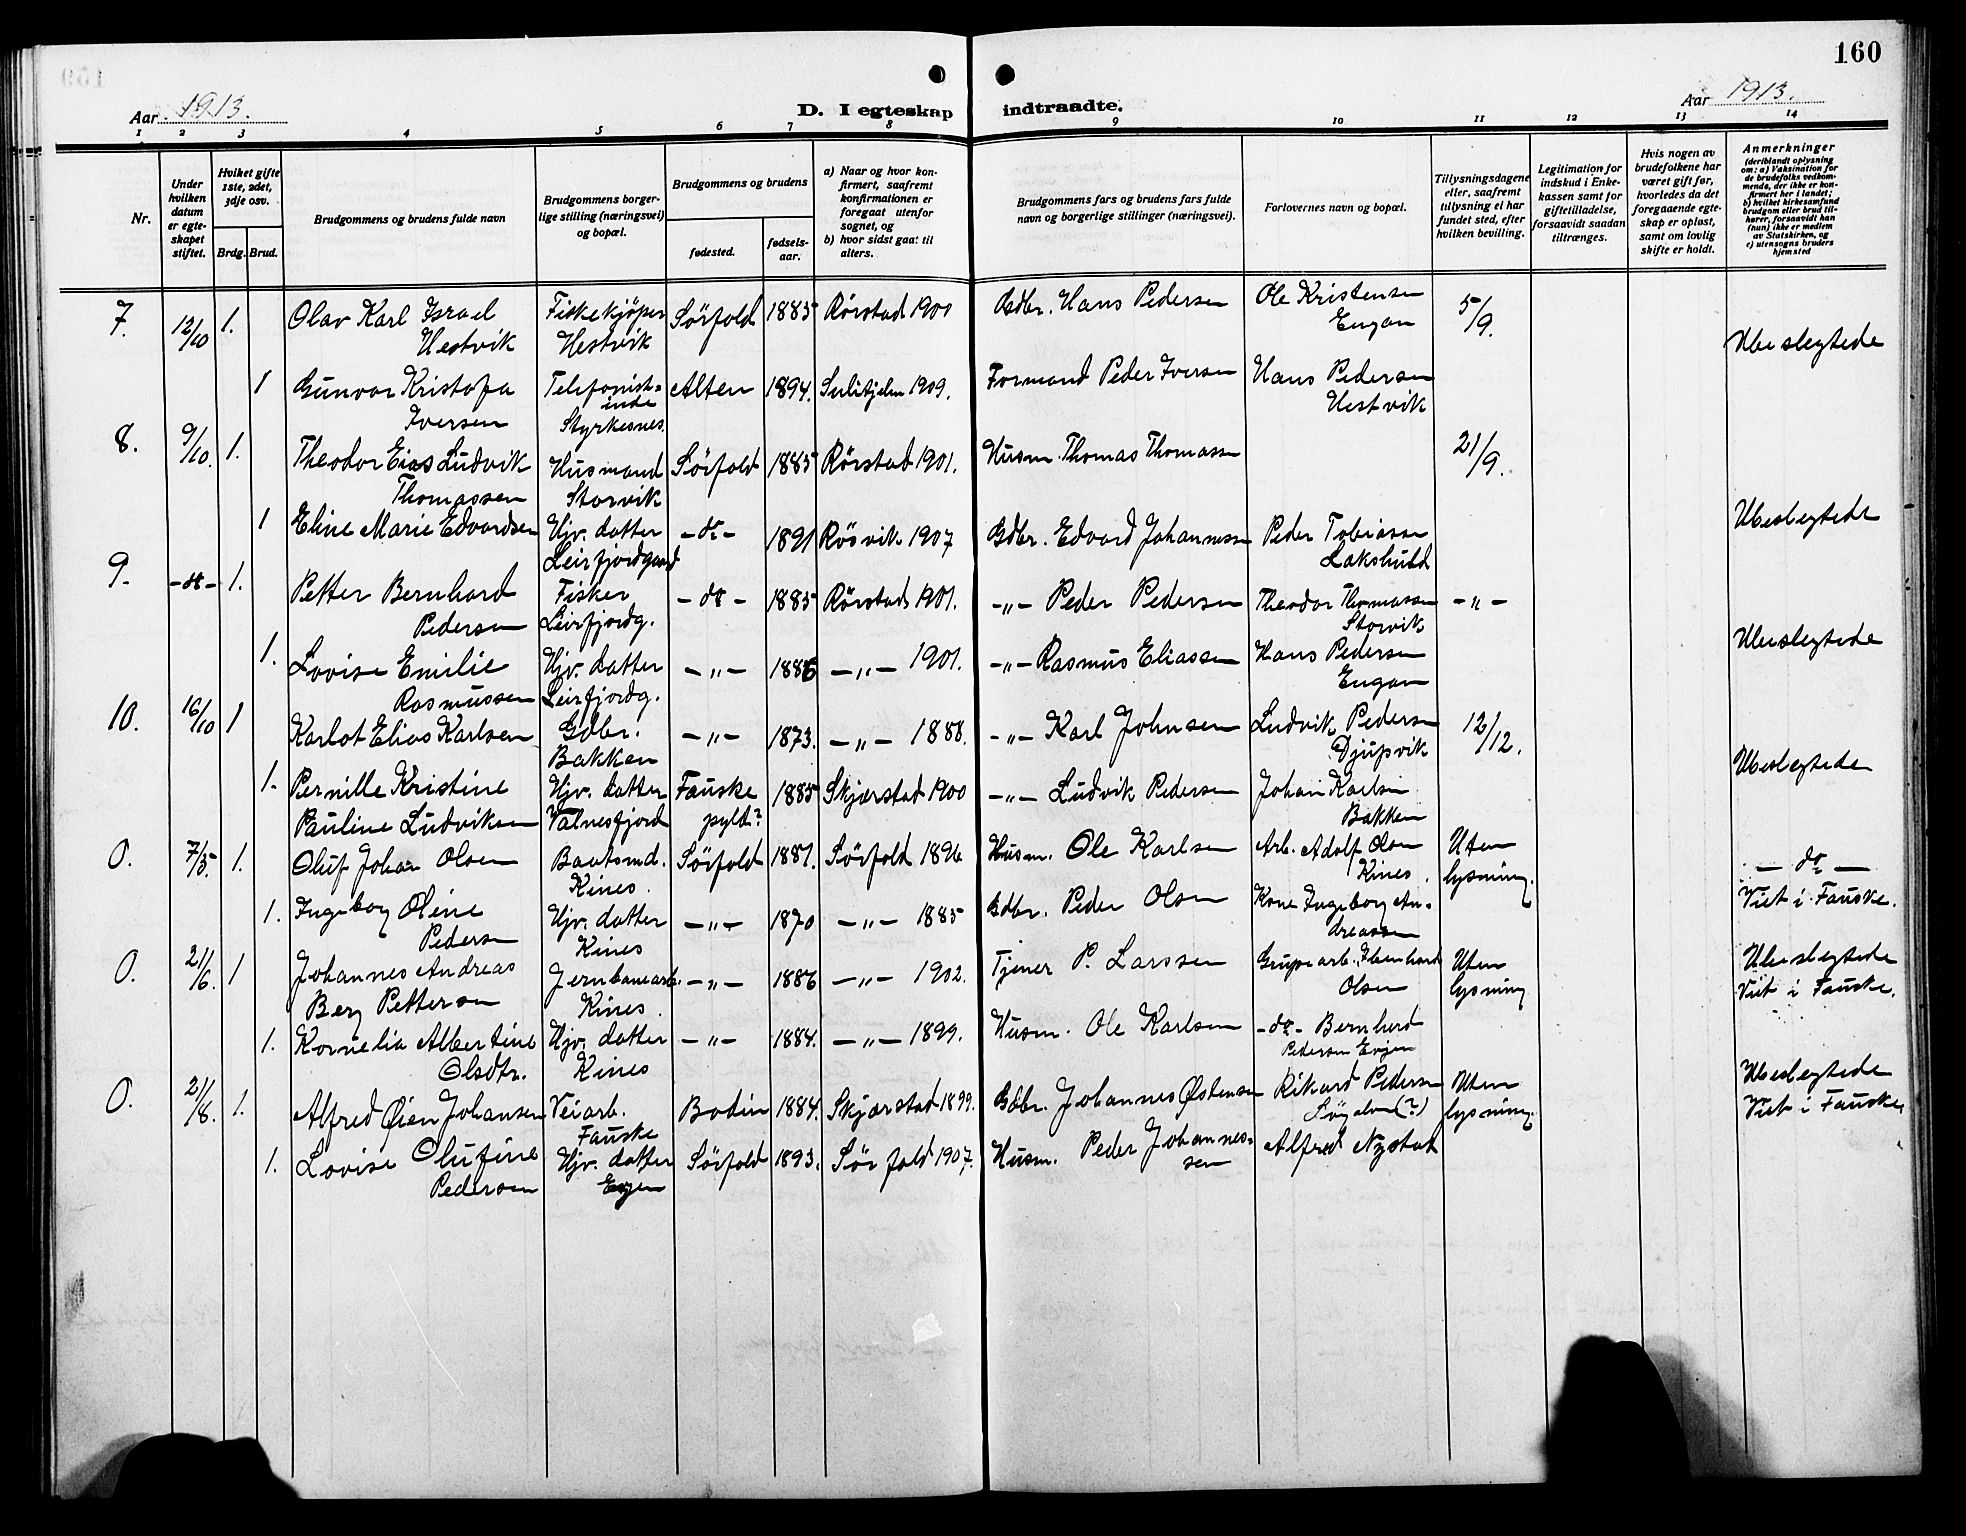 160
Aar 1913.
D. I egteskap indtraadte.
Aar 1913.
1 2 3 4 5 6 7 8 9 10 11 12 13 14
Nr.
Under hvilken datum er egteskapet stiftet.
Hviket gifte 1ste, 2det, 3dje osv.
Brdg. Brud.
Brudgommens og brudens fulde navn
Brudgommens borgerlige stilling (næringsvei) og bopæl.
Brudgommens og brudens
fødested.
fødselsaar.
a) Naar og hvor konfirmert, saafremt konfirmationen er foregaat utenfor sognet, og
b) hvor sidst gaat til alters.
Brudgommens fars og brudens fars fulde navn og borgerlige stillinger (næringsvei).
Forlovernes navn og bopæl.
Tillysningsdagene eller, saafremt tillysning ei har fundet sted, efter hvilken bevilling.
Legitimation for indskud i Enkekassen samt for giftetilladelse, forsaavidt saadan tiltrænges.
Hvis nogen av brudefolkene har været gift før, hvorledes da det foregaaende egteskap er opløst, samt om lovlig skifte er holdt.
Anmerkninger
(deriblandt oplysning om: a) Vaksination for de brudefolks vedkommende, der ikke er konfirmert her i landet; b) hvilket kirkesamfund brudgom eller brud tilhører, forsaavidt han (hun) ikke er medlem av Statskirken, og c) utensogns bruders hjemsted
7. 12/10 1. Olav Karl Israel Fiskekjøper Sörfold 1885 Rörstad 1900 Gdbr. Hans Pedersen Ole Kristensen 5/9.
Hestvik Hestvik Engan Ubeslegtede
1 Gunvor Kristofa Telefonist= Alten 1894. Sulitjelm 1909. Formand Peder Iversen Hans Pedersen
Iversen inde Styrkesnes. Hestvik
8. 9/10. 1. Theodor Eias Ludvik Husmand Sörfold 1885 Rörstad 1901. Husm. Thomas Thomassen 21/9.
Thomassen Storvik
1 Eline Marie Edvardsen Hjv. datter -do- 1891 Rösvik 1907 Gdbr. Edvard Johannessen Peder Tobiassen Ubeslegtede
Leirfjordgaard Lakshuld
9. -do- 1. Petter Bernhard Fisker -do- 1885 Rörstad 1901. -"- Peder Pedersen Theodor Thomassen -"-
Pedersen Leirfjordg. Storvik
1. Lovise Emilie Hjv. datter -"- 1886 -"- 1901. -"- Rasmus Eliassen Hans Pedersen Ubeslegtede
Rasmussen Leirfjordg. Engan
10. 16/10 1 Karlot Elias Karlsen Gdbr. -"- 1873. -"- 1888. -"- Karl Johnsen Ludvik Pedersen 12/12.
Bakken Djupvik
1. Pernille Kristine Hjv. datter Fauske 1885 Skjerstad 1900 -"- Ludvik Pedersen Johan Karlsen Ubeslegtede
Pauline Ludviksen Valnesfjord pgld? Bakken
0. 7/5. 1. Oluf Johan Olsen Baatsmd. Sörfold 1881. Sörfold 1896 Husm. Ole Karlsen Arb. Adolf Olsen Uten - do -
Kines. Kines. lysning.
1. Ingeborg Oline Hjv. datter -"- 1870 -"- 1885 Gdbr. Peder Olsen Kone Ingeborg An= Viet i Fauske.
Pedersen Kines dreassen
0. 21/6. 1 Johannes Andreas Jernbanearb. -"- 1886 -"- 1902. Tjener P. Larssen Grupearb. Olsen Uten Ubeslegtede
Berg Pettersen Kines. lysning Viet i Fauske.
1. Kornelia Albertine Hjv. datter -"- 1884. -"- 1899. Husm. Ole Karlsen -do- Bernhard
Olsdtr. Kines Pedersen Evjen
0. 21/8. 1. Alfred Øien Johansen Veiarb. Bodin 1884. Skjerstad 1899. Gdbr. Johannes Østensen Rikard Pedersen Uten Ubeslegtede
Fauske (?) lysning. Viet i Fauske
1. Lovise Olufine Hjv. datter Sörfold 1893. Sörfold 1907. Husm. Peder Johannes= Alfred Nystad
Pedersen Evjen sen